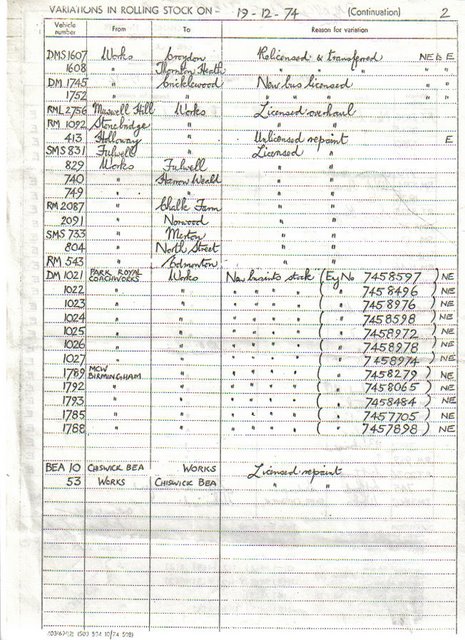 VARIATIONS IN ROLLING STOCK ON - 19-12-74 (Continuation) 2
Vehicle number From To Reason for variation
DMS 1607 Works Croydon Relicensed & transferred NE to E
1608 " Thornton Heath " " " " "
DM 1745 " Cricklewood New bus licensed " "
1752 " " " " " " "
RML 2756 Muswell Hill Works Licensed overhaul
RM 1092 Stonebridge " " "
413 Holloway " Unlicensed repaint E
SMS 831 Fulwell " Licensed "
829 Works Fulwell " "
740 " Harrow Weald " "
749 " " " "
RM 2087 " Chalk Farm " "
2091 " Norwood " "
SMS 733 " Merton " "
804 " North Street " "
RM 543 " Edmonton " "
DM 1021 PARK ROYAL COACHWORKS Works New bus into stock (Eng No 7458597) NE
1022 " " " " " " ( " 7458496) NE
1023 " " " " " " ( " 7458976) NE
1024 " " " " " " ( " 7458598) NE
1025 " " " " " " ( " 7458972) NE
1026 " " " " " " ( " 7458978) NE
1027 " " " " " " ( " 7458974) NE
1789 MCW BIRMINGHAM " " " " " ( " 7458279) NE
1792 " " " " " " ( " 7458065) NE
1793 " " " " " " ( " 7458484) NE
1785 " " " " " " ( " 7457705) NE
1788 " " " " " " ( " 7457898) NE
BEA 10 CHISWICK BEA WORKS Licensed repaint
53 WORKS CHISWICK BEA " "